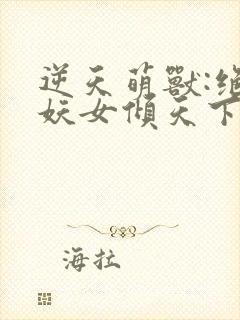 逆天萌獸:絕
妖女傾天下
海拉